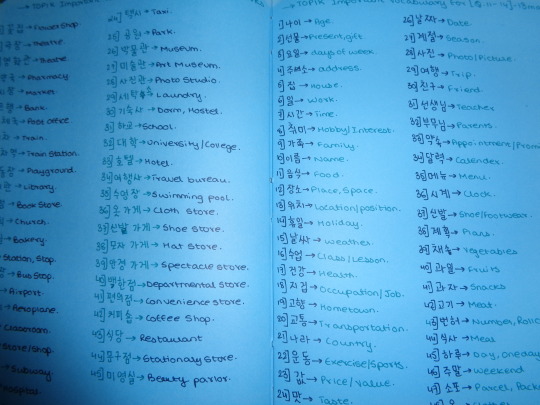 TOPIK Important
Flower Shop.
Theatre.
Theatre
Pharmacy
Market.
Bank.
Post Office
Train.
Train Station.
Playground.
Library.
Book Store
Church.
Bakery.
Station, Stop.
Bus Stop.
Airport.
Aeroplane.
Classroom
Store/Shop.
Subway.
Hospital.
24] 택시 → Taxi.
25] 공원 → Park.
26] 박물관 → Museum.
27] 미술관 → Art Museum.
28] 사진관 → Photo Studio.
29] 세탁소 → Laundry.
30] 기숙사 → Dorm, Hostel.
31] 학교 → School.
32] 대학 → University/College.
33] 호텔 → Hotel.
34] 여행사 → Travel bureau.
35] 수영장 → Swimming pool.
36] 옷 가게 → Cloth Store.
37] 신발 가게 → Shoe Store.
38] 모자 가게 → Hat Store.
39] 안경 가게 → Spectacle Store.
40] 백화점 → Departmental Store.
41] 편의점 → Convenience Store.
42] 커피숍 → Coffee Shop.
43] 식당 → Restaurant
44] 문구점 → Stationary Store.
45] 미용실 → Beauty parlor.
TOPIK Important Vocabulary for
1] 나이 → Age.
2] 선물 → Present, gift.
3] 요일 → days of week
4] 주소 → address.
5] 집 → House.
6] 일 → Work.
7] 시간 → Time.
8] 취미 → Hobby/Interest.
9] 가족 → Family.
10] 이름 → Name.
11] 음식 → Food.
12] 장소 → Place, Space.
13] 위치 → Location/position.
14] 휴일 → Holiday.
15] 날씨 → Weather.
16] 수업 → Class/Lesson.
17] 건강 → Health.
18] 직업 → Occupation/Job.
19] 고향 → Hometown.
20] 교통 → Transportation.
21] 나라 → Country.
22] 운동 → Exercise/Sports.
23] 값 → Price/Value.
24] 맛 → Taste.
26] 날짜 → Date.
27] 계절 → Season.
28] 사진 → Photo/Picture.
29] 여행 → Trip.
30] 친구 → Friend.
31] 선생님 → Teacher
32] 부모님 → Parents.
33] 약속 → Appointment/
34] 달력 → Calender.
35] 메뉴 → Menu.
36] 시계 → Clock.
37] 신발 → Shoe/Footwear.
38] 계획 → Plans.
39] 채소 → Vegetables
40] 과일 → Fruits
41] 과자 → Snacks
42] 고기 → Meat.
43] 번호 → Number,
44] 식사 → Meal
45] 하루 → Day, oneday
46] 주말 → Weekend
47] 소포 → Parcel,